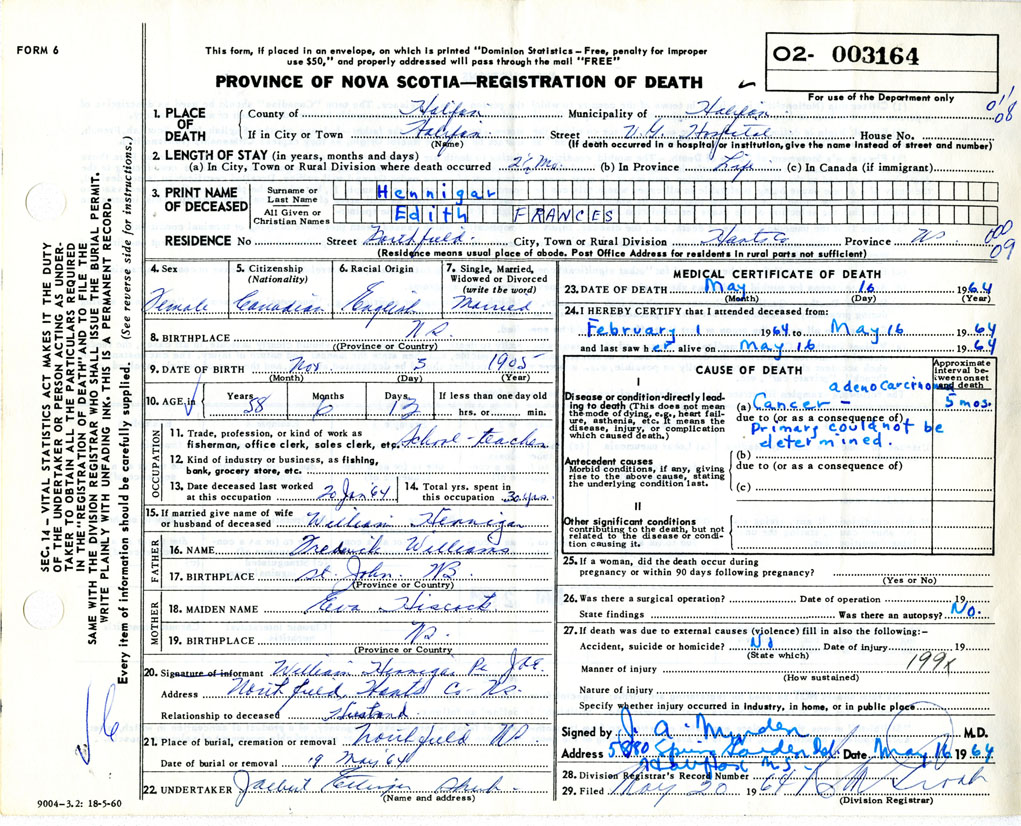 FORM 6
This form, if placed in an envelope, on which is printed "Dominion Statistics – Free, penalty for improper
use $50," and properly addressed will pass through the mail "FREE"
O2- 003164
PROVINCE OF NOVA SCOTIA—REGISTRATION OF DEATH
For use of the Department only
1. PLACE OF DEATH
County of Halifax Municipality of Halifax
If in City or Town Halifax Street V.G. Hospital House No.
(Name) (If death occurred in a hospital or institution, give the name instead of street and number)
2. LENGTH OF STAY (in years, months and days)
(a) In City, Town or Rural Division where death occurred 2½ Mo. (b) In Province Life (c) In Canada (if immigrant)
3. PRINT NAME OF DECEASED
Surname or Last Name Hennigar
All Given or Christian Names Edith FRANCES
RESIDENCE No Street Northfield City, Town or Rural Division Hants Co Province NS
(Residence means usual place of abode. Post Office Address for residents in rural parts not sufficient)
011
08
000
09
4. Sex
Female
5. Citizenship
(Nationality)
Canadian
6. Racial Origin
English
7. Single, Married,
Widowed or Divorced
(write the word)
Married
8. BIRTHPLACE N.S.
((Province or Country)
9. DATE OF BIRTH Nov 3 1905
(Month) (Day) (Year)
10. AGE in Years 58 Months 6 Days 13 If less than one day old
hrs. or min.
OCCUPATION
11. Trade, profession, or kind of work as
fisherman, office clerk, sales clerk, etc. School-teacher
12. Kind of industry or business, as fishing,
bank, grocery store, etc.
13. Date deceased last worked
at this occupation 20 Jan '64
14. Total yrs. spent in
this occupation 30 yrs.
15. If married give name of wife
or husband of deceased William Hennigar
FATHER
16. NAME Frederick Williams
17. BIRTHPLACE St. John NB
(Province or Country)
MOTHER
18. MAIDEN NAME Eva Hiscock
19. BIRTHPLACE NS
(Province or Country)
20. Signature of informant William Hennigar Per
Address Northfield, Hants Co. NS.
Relationship to deceased Husband
21. Place of burial, cremation or removal Northfield NS
Date of burial or removal 19 May 64
22. UNDERTAKER
(Name and address)
MEDICAL CERTIFICATE OF DEATH
23. DATE OF DEATH May 16 1964
(Month) (Day) (Year)
24. I HEREBY CERTIFY that I attended deceased from:
February 1 1964 to May 16 1964
and last saw her alive on May 16 1964
CAUSE OF DEATH
Approximate interval between onset and death
I
Disease or condition directly leading to death (This does not mean the mode of dying, e.g., heart failure, asthenia, etc. It means the disease, injury, or complication which caused death.)
adenocarcinoma
(a) Cancer – 5 mos.
due to (or as a consequence of)
Primary could not be
determined.
(b)
due to (or as a consequence of)
(c)
Antecedent causes
Morbid conditions, if any, giving rise to the above cause, stating the underlying condition last.
II
Other significant conditions
contributing to the death, but not related to the disease or condition causing it.
25. If a woman, did the death occur during
pregnancy or within 90 days following pregnancy?
(Yes or No)
26. Was there a surgical operation? Date of operation 19
State findings Was there an autopsy? No.
27. If death was due to external causes (violence) fill in also the following:–
Accident, suicide or homicide? No Date of injury 19
(State which)
199x
Manner of injury
(How sustained)
Nature of injury
Specify whether injury occurred in industry, in home, or in public place
Signed by J. A. Myrden M.D.
Address 5880 Spring Garden Rd. Date May 16 1964
Halifax N.S.
28. Division Registrar's Record Number
29. Filed May 20 1964
(Division Registrar)
SEC. 14 – VITAL STATISTICS ACT MAKES IT THE DUTY
OF THE UNDERTAKER OR PERSON ACTING AS UNDER-
TAKER TO OBTAIN ALL THE PARTICULARS REQUIRED
IN THE "REGISTRATION OF DEATH" AND TO FILE THE
SAME WITH THE DIVISION REGISTRAR WHO SHALL ISSUE THE BURIAL PERMIT.
WRITE PLAINLY WITH UNFADING INK. THIS IS A PERMANENT RECORD.
Every item of information should be carefully supplied. (See reverse side for instructions.)
9004–3.2: 18-5-60